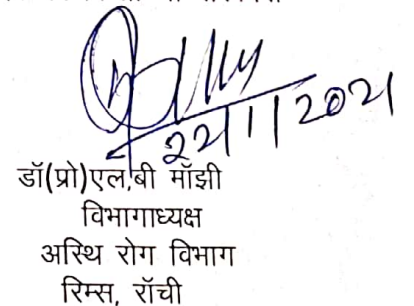 22/1/2021
डॉ(प्रो)एल.बी मॉझी
विभागाध्यक्ष
अस्थि रोग विभाग
रिम्स, रॉची